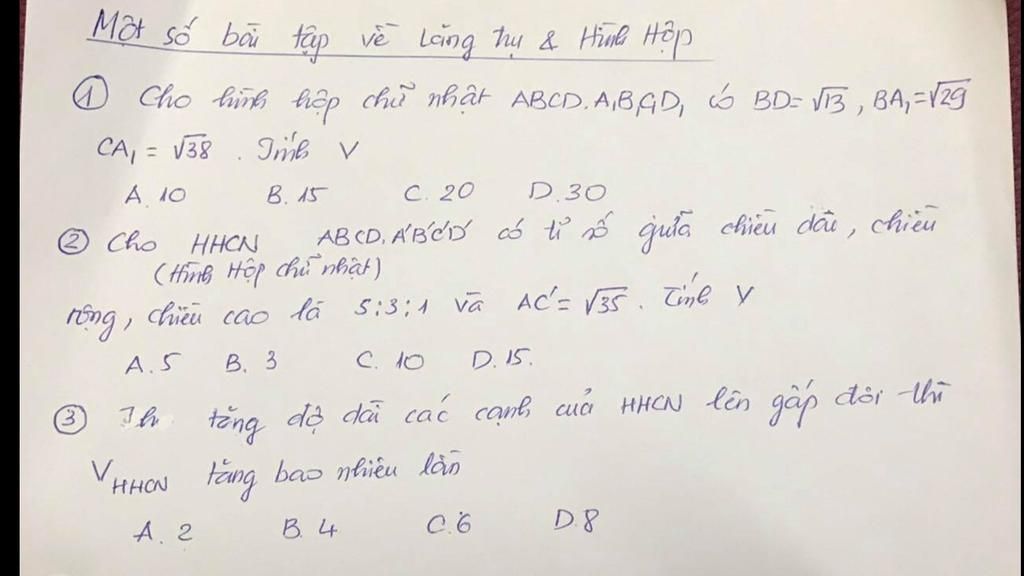 Một số bài tập về Lăng trụ & Hình Hộp
① Cho hình hộp chữ nhật ABCD.A₁B₁C₁D₁ có BD=√13, BA₁=√29
CA₁ = √38. Tính V
A. 10 B. 15 C. 20 D. 30
② Cho HHCN ABCD.A'B'C'D' có tỉ số giữa chiều dài, chiều
(Hình Hộp chữ nhật)
rộng, chiều cao là 5:3:1 và AC'=√35. Tính V
A. 5 B. 3 C. 10 D. 15.
③ tăng độ dài các cạnh của HHCN lên gấp đôi thì
V HHCN tăng bao nhiêu lần
A. 2 B. 4 C. 6 D. 8